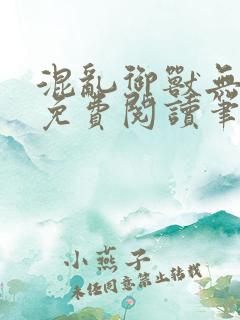 混亂御獸無
免費閱讀筆
小燕子
未任同意禁止轉載